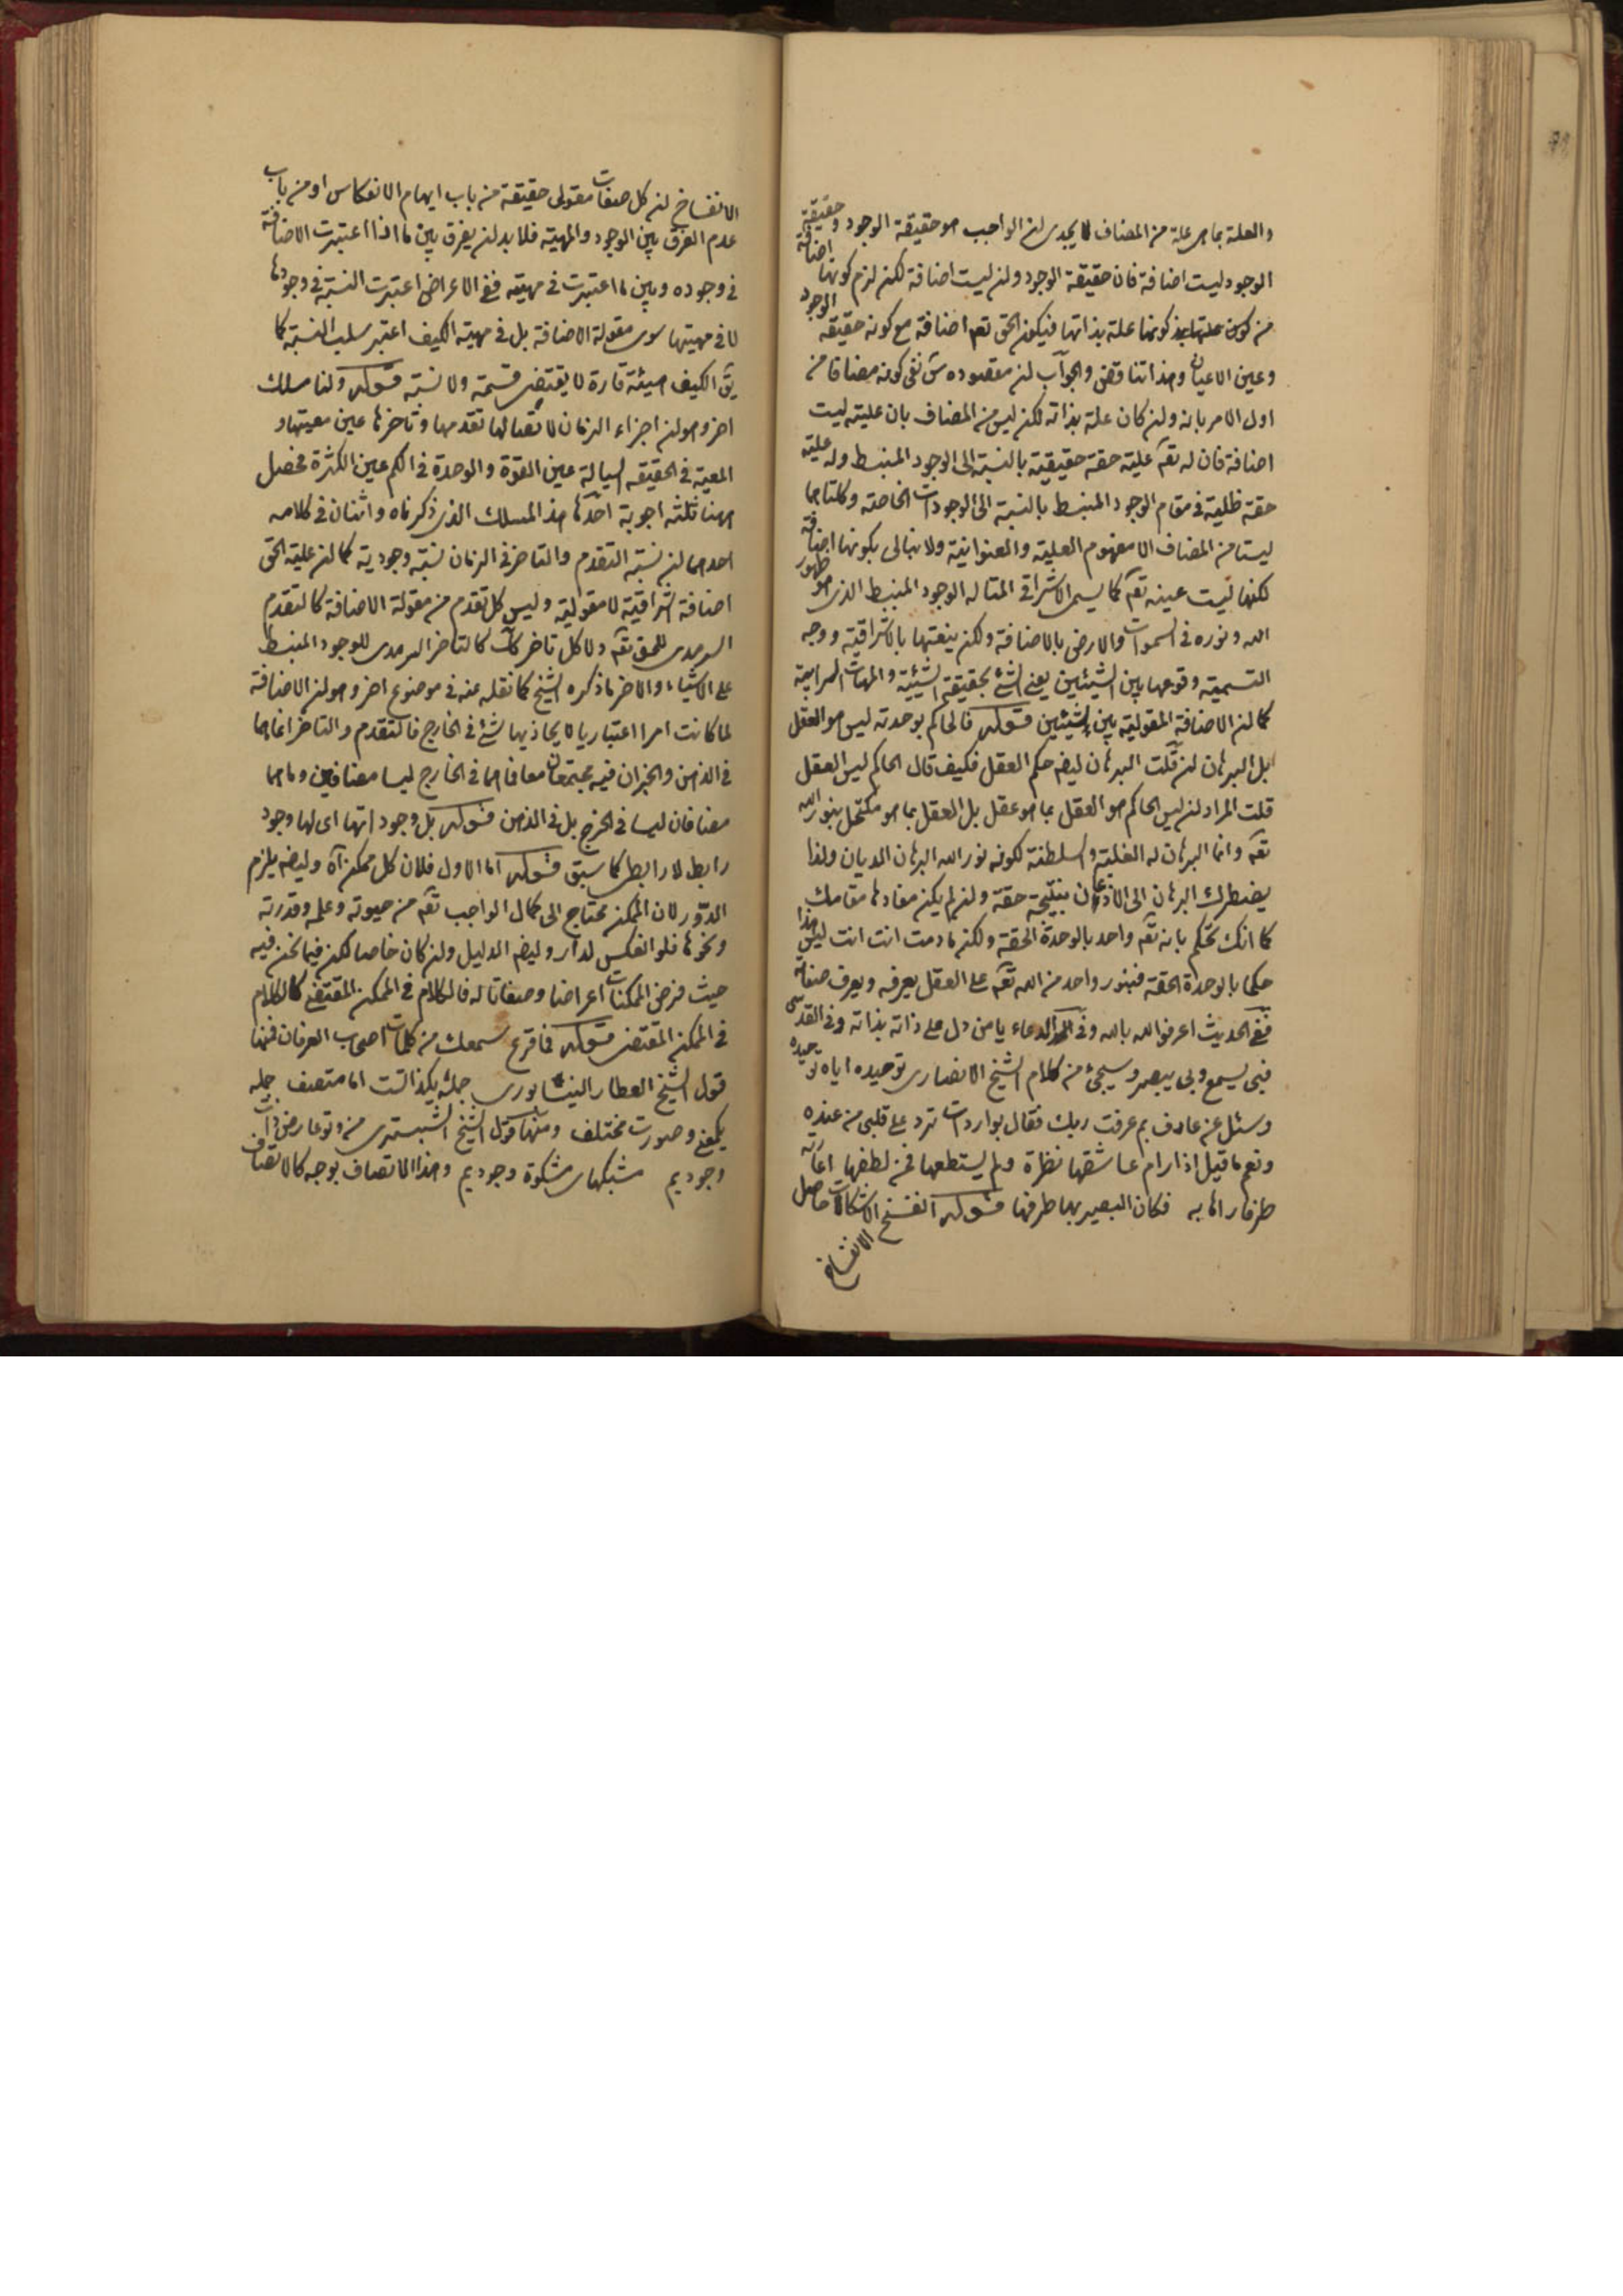 والعلة بما هی علة من المضاف لا یجدی لان الواجب هو حقیقة الوجود وحقیقة
الوجود لیست اضافة فان حقیقة الوجود وان لیست اضافة لکن لزم کونها اضافة
من کون علیتها بذاتها فیکون الحق تعه اضافة مع کونه حقیقة الوجود
وعین الاعیان وهذا تناقض والجواب ان مقصوده س نفی کونه مضافا من
اول الامر بانه وان کان علة بذاته لکن لیس من المضاف بان علیته لیست
اضافة فان له تعه علیة حقة حقیقیة بالنسبة الی الوجود المنبسط وله علیة
حقة ظلیة فی مقام الوجود المنبسط بالنسبة الی الوجودات الخاصة وکلتاهما
لیستا من المضاف الا مفهوم العلیة والعنوانیة ولا نبالی بکونها اضافة
لکنها لیست عینه تعه کما یسمی الاشراقی المتاله الوجود المنبسط الذی هو ظهور
الله ونوره فی السموات والارض بالاضافة ولکن ینعتها بالاشراقیة ووجه
التسمیة وقوعها بین الشیئین یعنی الشئ بحقیقة الشیئیة والمهیات السرابیة
کما ان الاضافة المقولیة بین شیئین قوله فالحاکم بوحدته لیس هو العقل
بل البرهان ان قلت البرهان ایضه حکم العقل فکیف قال الحاکم لیس العقل
قلت المراد ان لیس الحاکم هو العقل بما هو عقل بل العقل بما هو مکتحل بنور الله
تعه وانما البرهان له الغلبة والسلطنة لکونه نور الله البرهان الدیان ولذا
یضطرک البرهان الی الاذعان بنتیجة حقة وان لم یکن مفادها مقامک
کما انک تحکم بانه تعه واحد بالوحدة الحقة ولکن مادمت انت انت لیس هذا
حکما بالوحدة الحقة فبنور واحد من الله تعه علی العقل یعرفه ویعرف صفاته
ففی الحدیث اعرفوا الله بالله وفی الدعاء یا من دل علی ذاته بذاته وفی القدسی
فبی یسمع وبی یبصر وسیجئ من کلام الشیخ الانصاری توحیده ایاه توحیده
وسئل عن عارف بم عرفت ربک فقال بواردات ترد علی قلبی من عنده
ونعم ما قیل اذا رام عاشقها نظرة ولم یستطعها فمن لطفها اعارته
طرفا راها به فکان البصیر بها طرفها قوله انفسخ الاشکالات حاصل
الانفساخ
الانفساخ ان کل صفات مقولی حقیقة من باب ایهام الانعکاس او من باب
عدم الفرق بین الوجود والمهیة فلا بد ان یفرق بین ما اذا اعتبرت الاضافة
فی وجوده وبین ما اعتبرت فی مهیته ففی الاعراض اعتبرت النسبة فی وجودها
لا فی مهیتها سوی مقولة الاضافة بل فی مهیة الکیف اعتبر سلب النسبة کما
یق الکیف هیئة قارة لا یقتضی قسمة ولا نسبة قوله ولنا مسلک
اخر وهو ان اجزاء الزمان لا تقابلها تقدمها وتاخرها عین معیتها و
المعیة فی الحقیقه السیالة عین القوة والوحدة فی الکم عین الکثرة فحصل
ههنا ثلثه اجوبة احدها هذا المسلک الذی ذکرناه واثنان فی کلامه
احدهما ان نسبة التقدم والتاخر فی الزمان نسبة وجودیة کما ان علیة الحق
اضافة اشراقیة لا مقولیة ولیس کل تقدم من مقولة الاضافة کالتقدم
السرمدی للحق تعه ولا کل تاخر کک کالتاخر السرمدی للوجود المنبسط
علی الاشیاء والاخر ما ذکره الشیخ کما نقله عنه فی موضوع اخر وهو ان الاضافة
لما کانت امرا اعتباریا لا یحاذیها شئ فی الخارج فالتقدم والتاخر انما هما
فی الذهن والجزان فیه مجتمعان معا فاهما فی الخارج لیسا مضافین وما هما
مضافان لیسا فی الخرج بل فی الذهن قوله بل وجود اتها ای لها وجود
رابط لا رابطی کما سبق قوله اما الاول فلان کل ممکن اه ولیضه یلزم
الدور لان الممکن محتاج الی کمال الواجب تعه من حیوته وعلمه وقدرته
ونحوها فلو انعکس لدار ولیضه الدلیل وان کان خاصا لکن فیما نحن فیه
حیث فرض الممکنات اعراضا وصفاتا له فالکلام فی الممکن المقتفی کالکلام
فی الممکن المقتضی قوله فما قرع سمعک من کلمات اصحاب العرفان فمنها
قول الشیخ العطار النیشابوری جمله یکذاتست اما متصف جمله
یکمعنی وصورت مختلف ومنها قول الشیخ الشبستری من وتو عارض ذات
وجودیم مشبکهای مشکوة وجودیم وهذا الاتصاف بوجه کالاتصاف